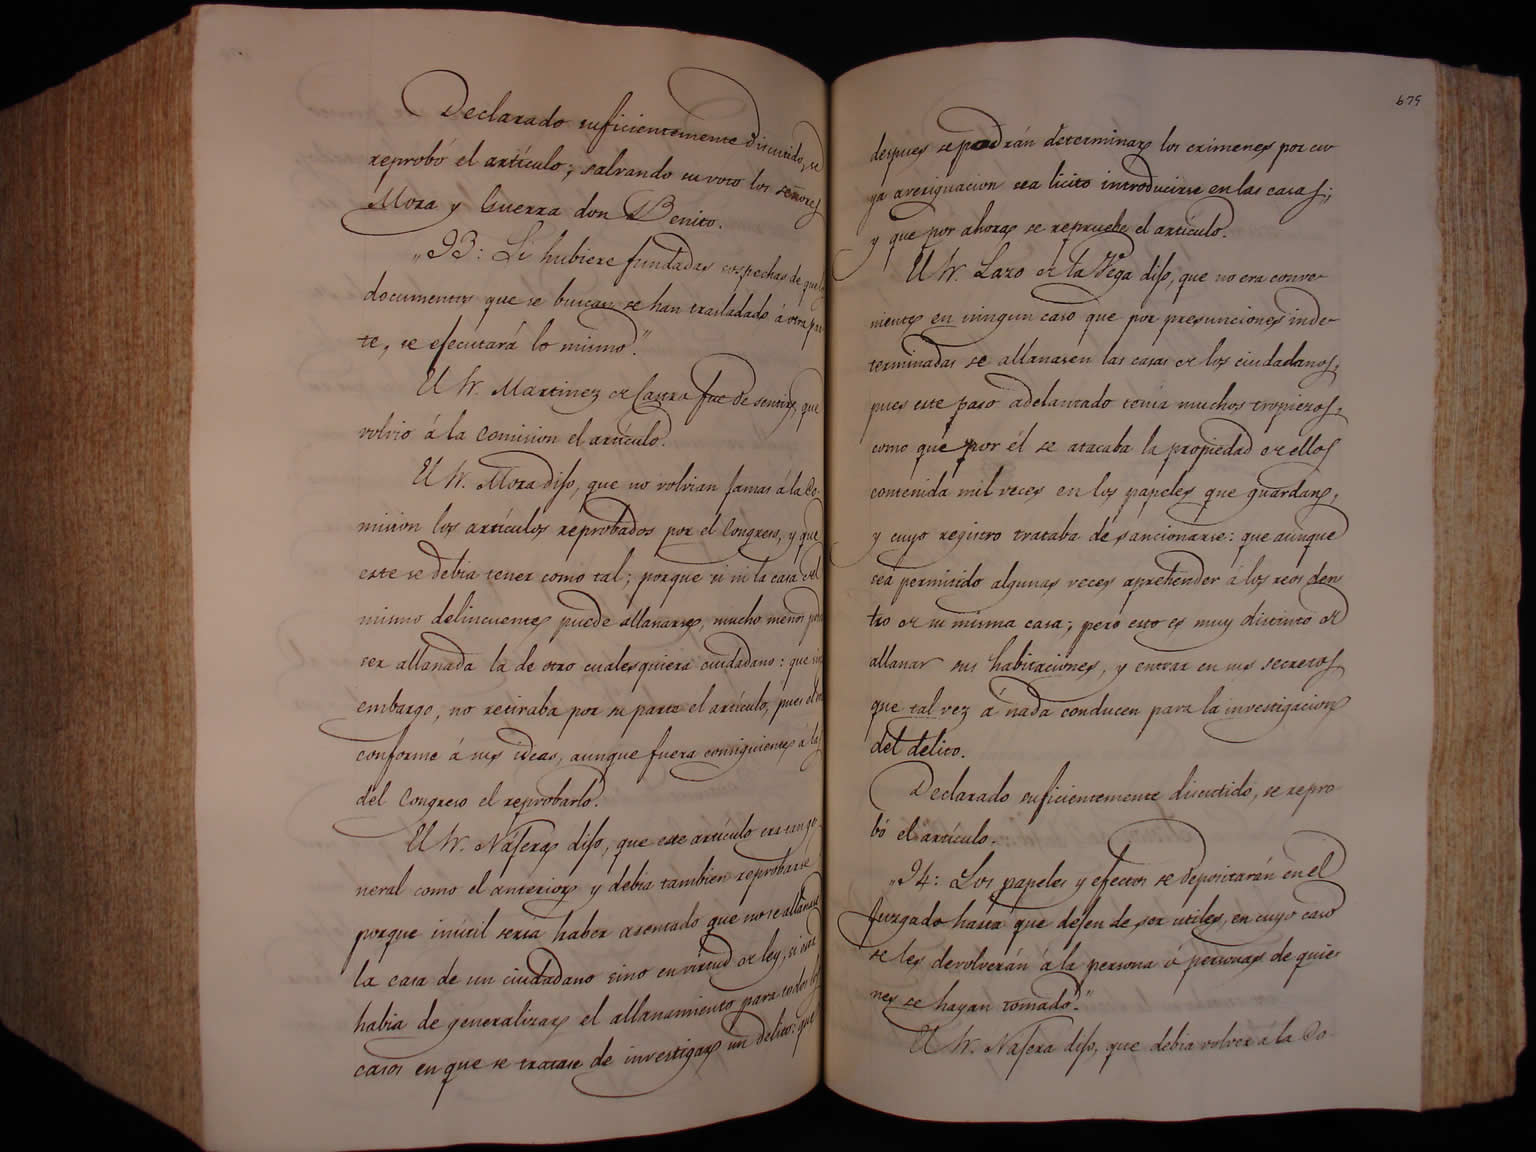 Declarado suficientemente discutido, se
reprobó el artículo; salvando su voto los señores
Mora y Guerra don Benito.
„93: Si hubiere fundadas sospechas de que los
documentos que se buscan se han trasladado á otra par
te, se ejecutará lo mismo."
El Sr. Martinez de Castro fue de sentir, que
volvio á la comision el artículo.
El Sr. Mora dijo, que no volvian jamas á la Co-
mision los artículos reprobados por el Congreso, y que
este se debia tener como tal; porque si ni la casa del
mismo delincuente puede allanarse, mucho menos podrá
ser allanada la de otro cualesquiera ciudadano: que sin
embargo, no retiraba por su parte el artículo, pues el era
conforme á sus ideas, aunque fuera consiguiente á las
del Congreso el reprobarlo.
El Sr. Najera dijo, que este artículo era tan ge-
neral como el anterior y debia tambien reprobarse
porque inútil seria haber asentado que no se allanase
la casa de un ciudadano sino en virtud de ley, si esta
habia de generalizar el allanamiento para todos los
casos en que se tratase de investigar un delito: que
675
despues se podrán determinar los crímenes por cu-
ya averiguacion sea lícito introducirse en las casas;
y que por ahora se repruebe el artículo.
El Sr. Lazo de la Vega dijo, que no era conve-
niente en ningun caso que por presunciones inde-
terminadas se allanasen las casas de los ciudadanos,
pues este paso adelantado tenia muchos tropiezos,
como que por él se atacaba la propiedad de ellos
contenida mil veces en los papeles que guardan,
y cuyo registro trataba de sancionarse: que aunque
sea permitido algunas veces aprehender á los reos den
tro de su misma casa; pero esto es muy distinto de
allanar sus habitaciones, y entrar en sus secretos
que tal vez á nada conducen para la investigacion
del delito.
Declarado suficientemente discutido, se repro-
bó el artículo.
„94: Los papeles y efectos se depositarán en el
Juzgado hasta que dejen de ser utiles, en cuyo caso
se les devolverán á la persona ó personas de quie-
nes se hayan tomado."
El Sr. Najera dijo, que debia volver á la Co-